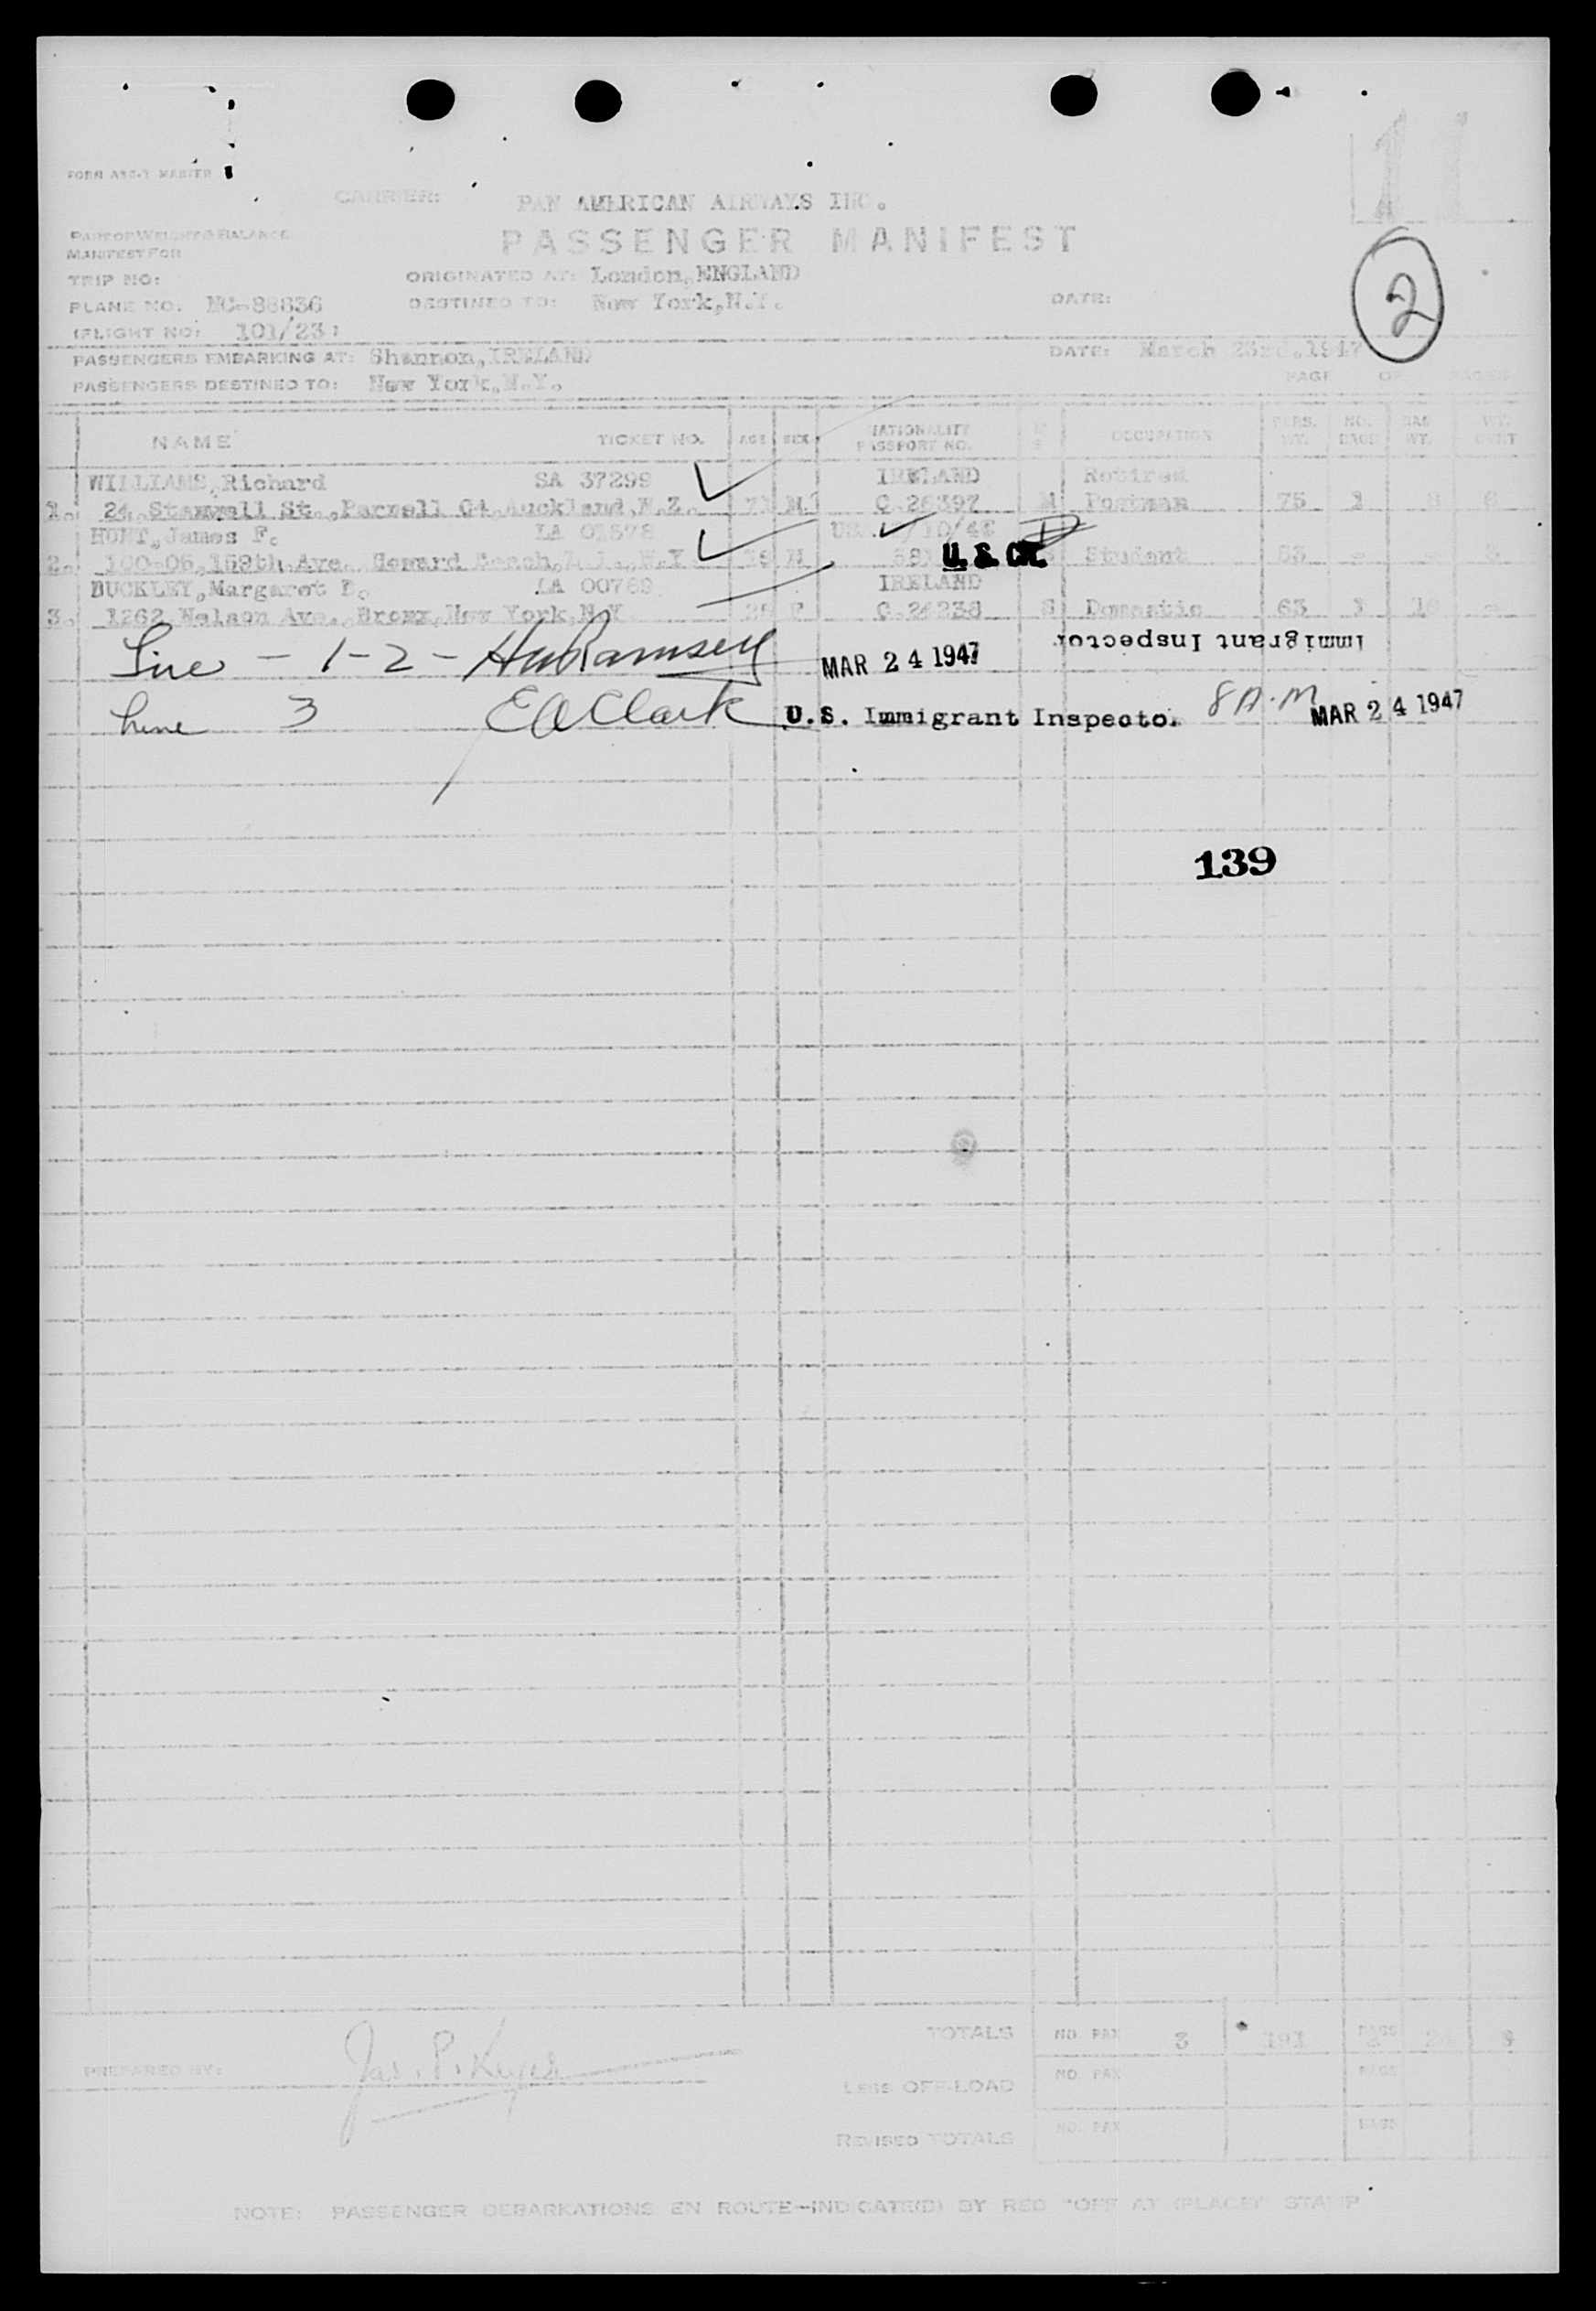 FORM
CARRIER: PAN AMERICAN AIRWAYS INC.
PASSENGER MANIFEST
PART OF WEIGHT & BALANCE
MANIFEST FOR
TRIP NO: ORIGINATED AT: London, ENGLAND
PLANE NO: NC-88836 DESTINED TO: New York, N.Y. DATE:
FLIGHT NO: 101/23
2
PASSENGERS EMBARKING AT: Shannon, IRELAND DATE: March 23rd, 1947
PASSENGERS DESTINED TO: New York, N.Y. PAGE OF PAGES
NAME TICKET NO. AGE SEX NATIONALITY PASSPORT NO. OCCUPATION PERS. WT. NO. BAGS BAG WT.
WILLIAMS, Richard SA 37299 IRELAND Retired
1. 24, St., Parnell Auckland, N.Z. 71 M C.26397 M Postman 75 1 8
HUNT, James F. LA 01578 US.
2. 100-05, 159th Ave. Howard Beach, N.Y M U.S. CIT. Student
BUCKLEY, Margaret LA 00789 IRELAND
3. 1262 Nelson Ave., Bronx, New York, N.Y. F C.24238 S Domestic 63 1
Line - 1-2 - HM Ramsey MAR 24 1947 Immigrant Inspector
Line 3 EA Clark U.S. Immigrant Inspector 8 A.M MAR 24 1947
139
TOTALS NO. PAX 3 191 BAGS
PREPARED BY: Jas. P. Keyes
LESS OFF-LOAD NO. PAX BAGS
REVISED TOTALS NO. PAX BAGS
NOTE: PASSENGER DEBARKATIONS EN ROUTE-INDICATE(D) BY RED "OFF AT (PLACE)" STAMP